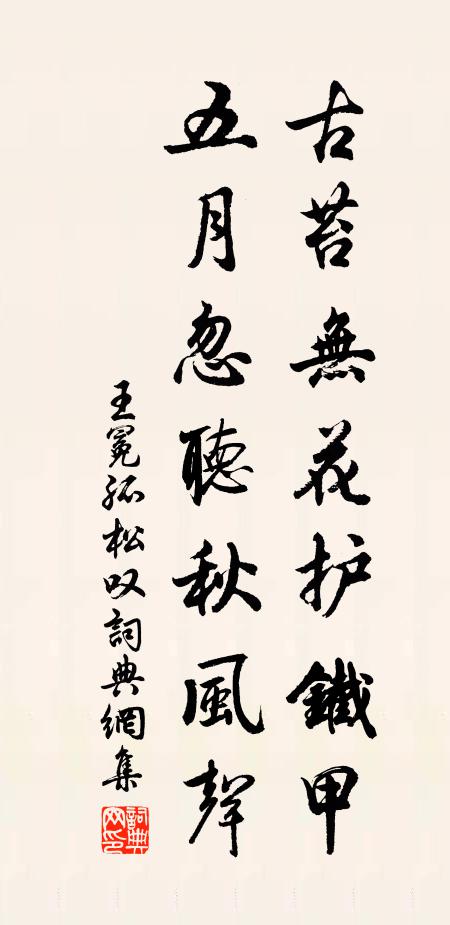 古苔無花护鐵甲
五月忽聽秋風聲
王冕孤松叹詞典網集
詞典网印